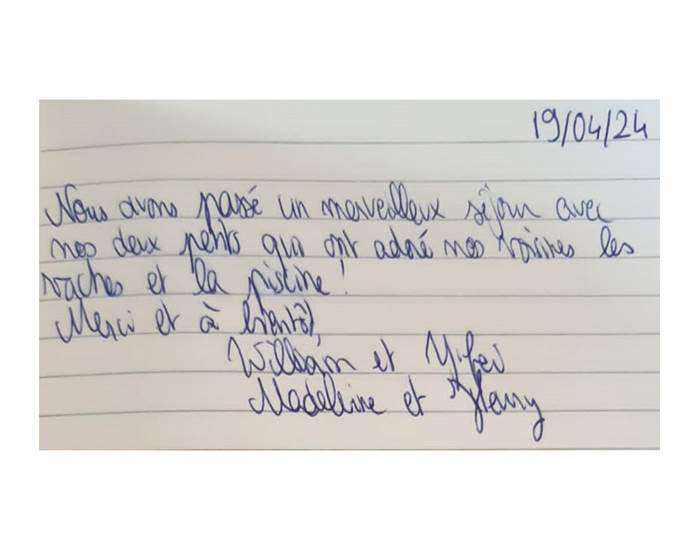 19/04/24
Nous avons passé un merveilleux séjour avec
nos deux petits qui ont adoré nos voisines les
vaches et la piscine !
Merci et à bientôt,
William et Yifei
Madeleine et Henry